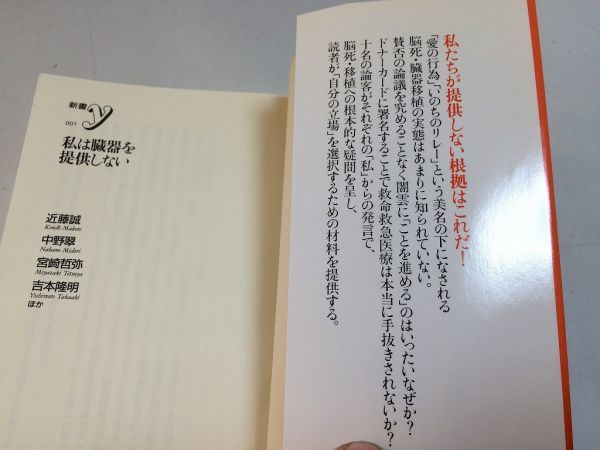 新書y
001
私は臓器を
提供しない
近藤誠
Kondô Makoto
中野翠
Nakano Midori
宮崎哲弥
Miyazaki Tetsuya
吉本隆明
Yoshimoto Takaaki
ほか
私たちが提供しない根拠はこれだ！
「愛の行為」「いのちのリレー」という美名の下になされる
脳死・臓器移植の実態はあまりに知られていない。
賛否の論議を究めることなく闇雲に「ことを進める」のはいったいなぜか？
ドナーカードに署名することで救命救急医療は本当に手抜きされないか？
十名の論客がそれぞれの「私」からの発言で、
脳死・移植への根本的な疑問を呈し、
読者が「自分の立場」を選択するための材料を提供する。